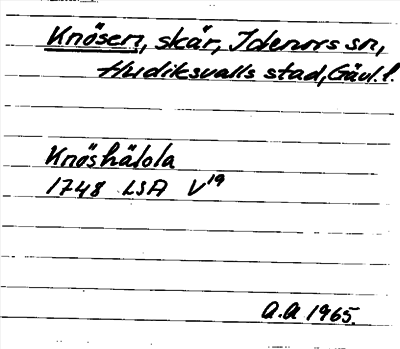 Knösen, skär, Idenors sn,
Hudiksvalls stad, Gävl. l.
Knöshälola
1748 LSA V19
A.A 1965.